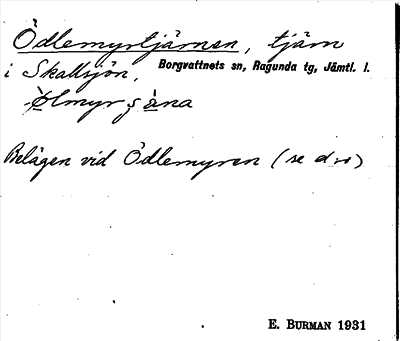 Ödlemyrtjärnen, tjärn
i Skallsjön, Borgvattnets sn, Ragunda tg, Jämtl. l.
Belägen vid Ödlemyren (se d.o)
E. BURMAN 1931